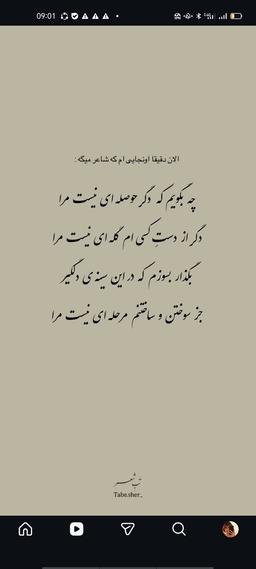 09:01
الان دقیقا اونجایی ام که شاعر میگه :
چه بگویم که دگر حوصله ای نیست مرا
دگر از دستِ کسی ام گله ای نیست مرا
بگذار بسوزم که در این سینه ی دلگیر
جز سوختن و ساختنم مرحله ای نیست مرا
تب شعر
Tabe.sher_